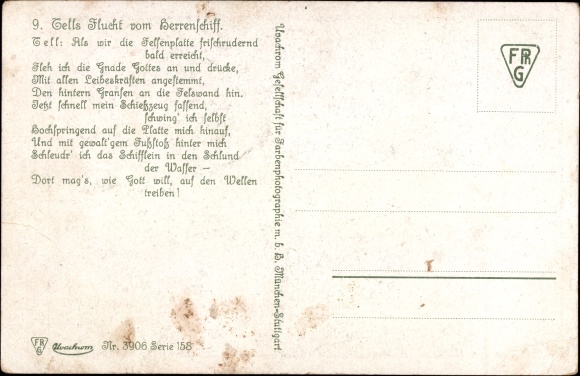 9. Tells Flucht vom Herrenschiff.
Tell: Als wir die Felsenplatte frischrudernd
bald erreicht,
Fleh ich die Gnade Gottes an und drücke,
Mit allen Leibeskräften angestemmt,
Den hintern Gransen an die Felswand hin.
Jetzt schnell mein Schießzeug fassend,
schwing' ich selbst
Hochspringend auf die Platte mich hinauf,
Und mit gewalt'gem Fußstoß hinter mich
Schleudr' ich das Schifflein in den Schlund
der Wasser —
Dort mag's, wie Gott will, auf den Wellen
treiben!
FR
G
Uvachrom
Nr. 3906 Serie 158
Uvachrom Gesellschaft für Farbenphotographie m. b. H. München-Stuttgart
FPR
G